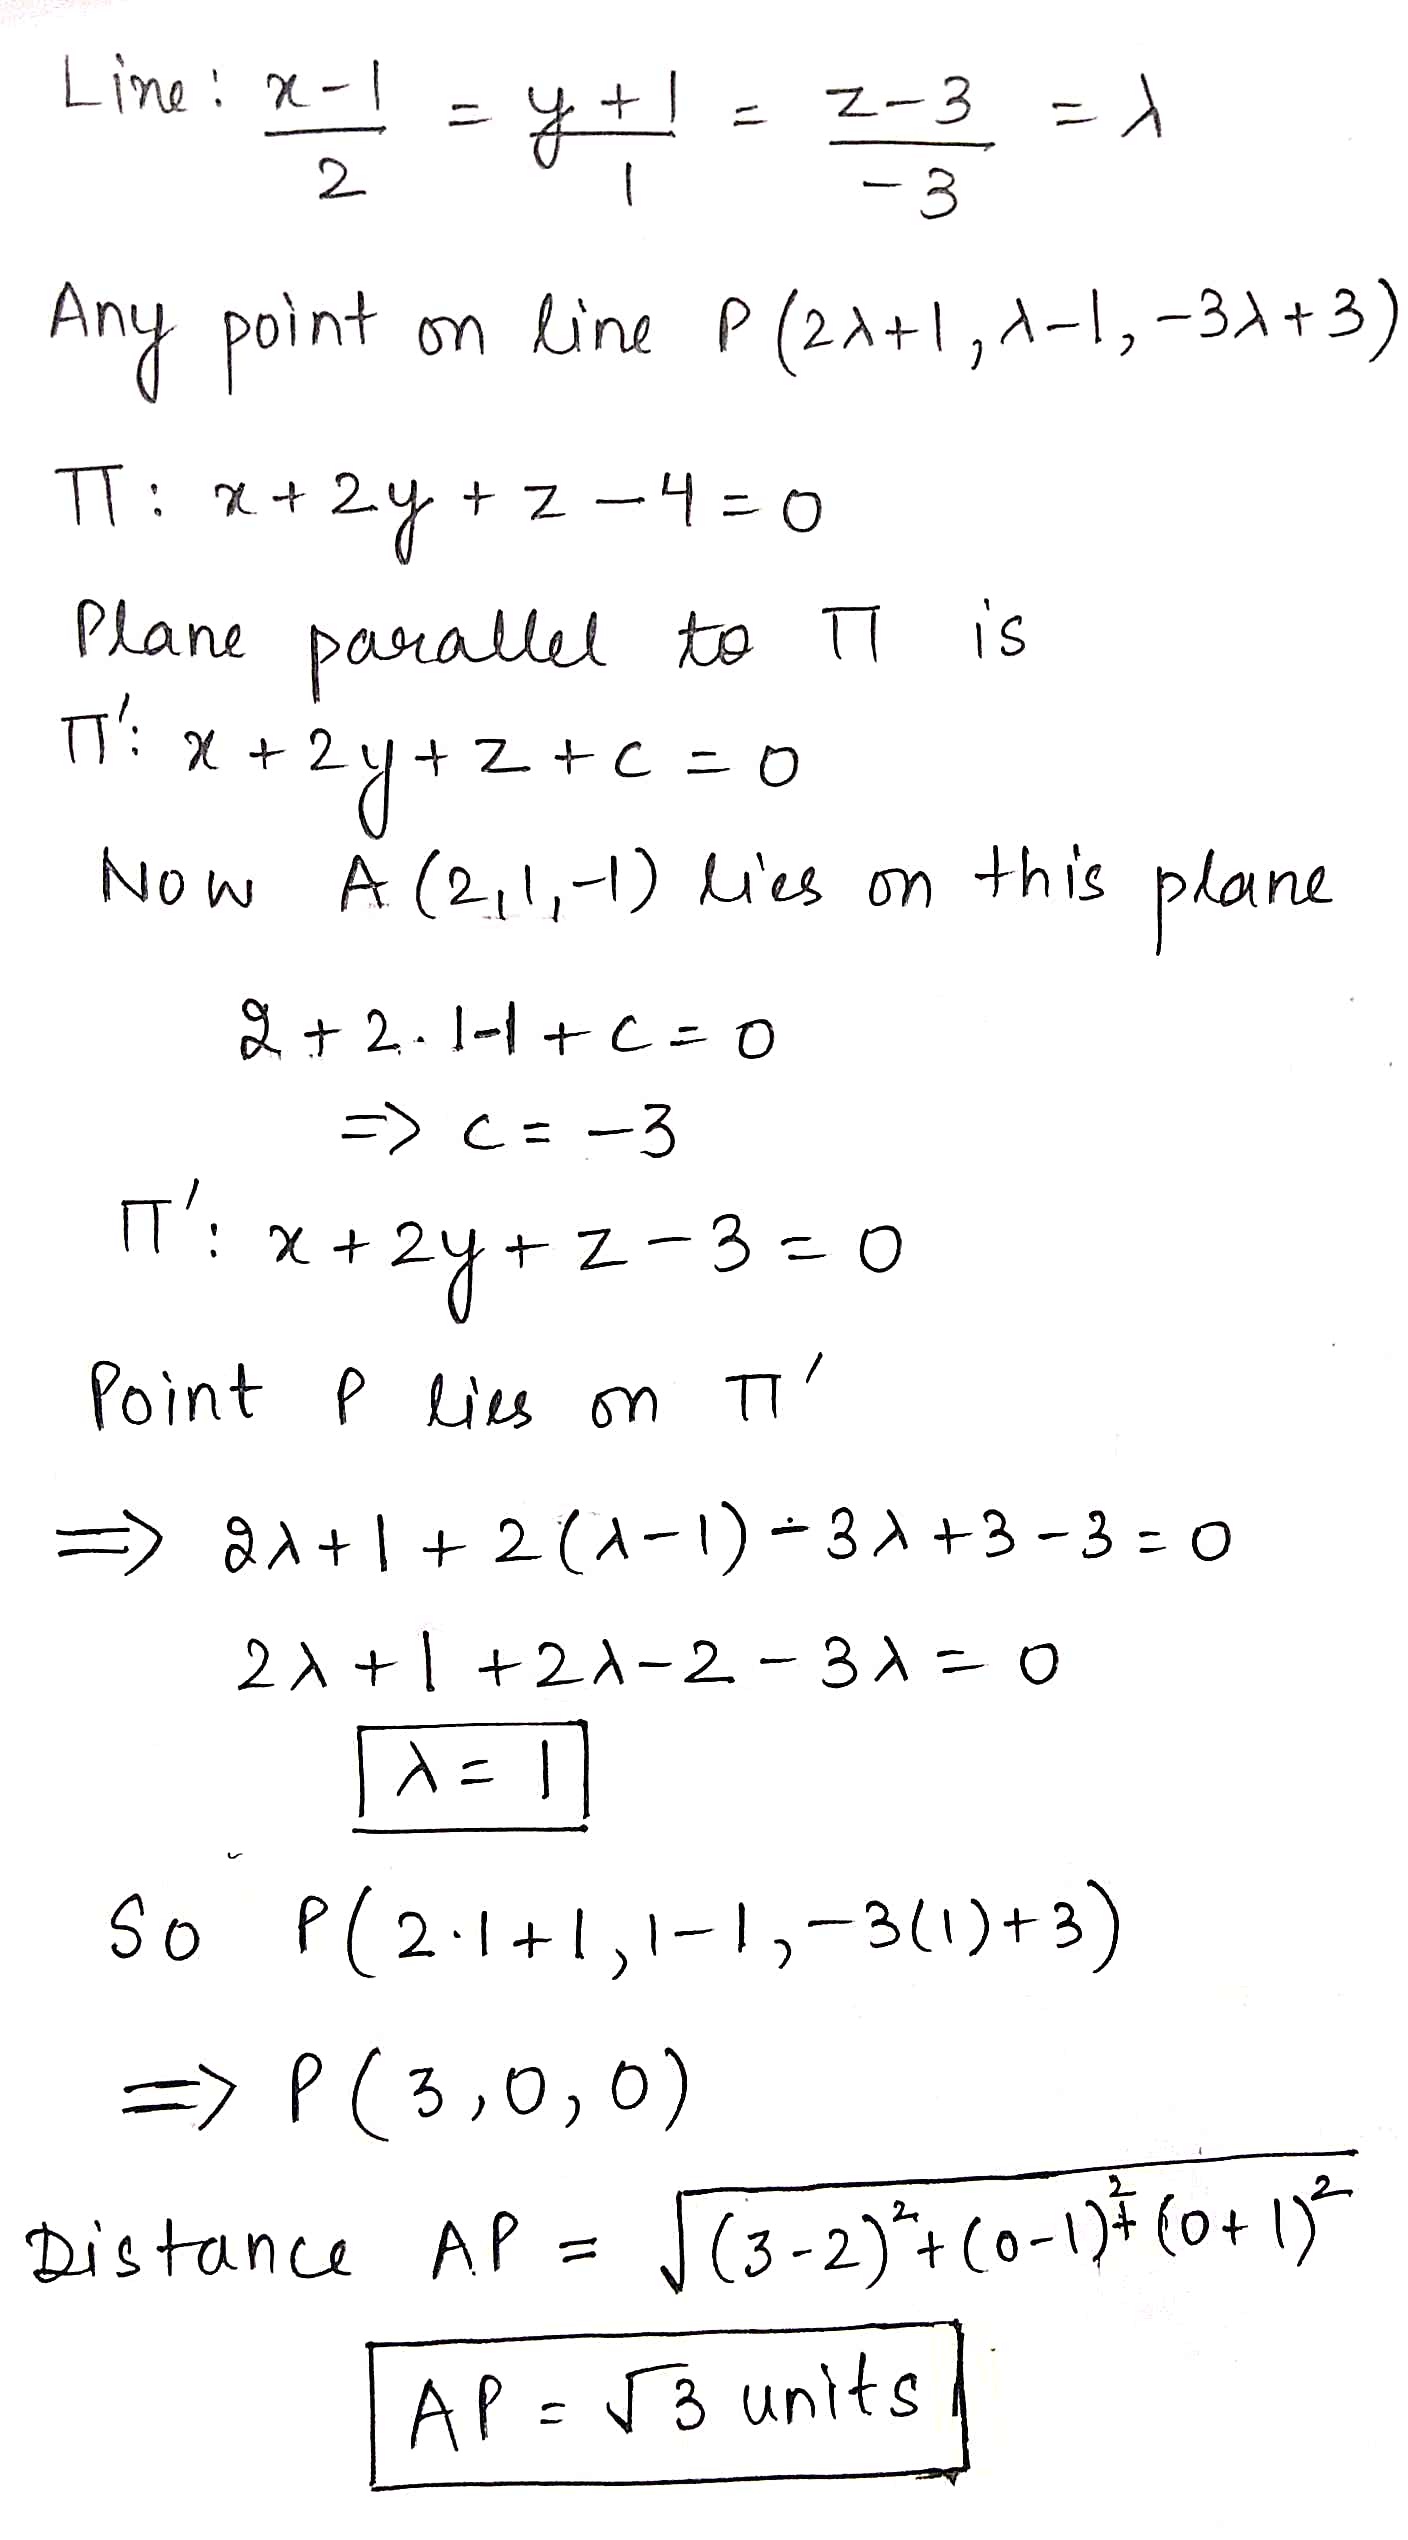 Line: x-1/2 = y+1/1 = z-3/-3 = λ
Any point on line P(2λ+1, λ-1, -3λ+3)
Π: x+2y+z-4=0
Plane parallel to Π is
Π': x+2y+z+c=0
Now A(2,1,-1) lies on this plane
2+2.1-1+c=0
=> c=-3
Π': x+2y+z-3=0
Point P lies on Π'
=> 2λ+1+2(λ-1)-3λ+3-3=0
2λ+1+2λ-2-3λ=0
λ=1
So P(2·1+1, 1-1, -3(1)+3)
=> P(3,0,0)
Distance AP = √(3-2)²+(0-1)²+(0+1)²
AP = √3 units